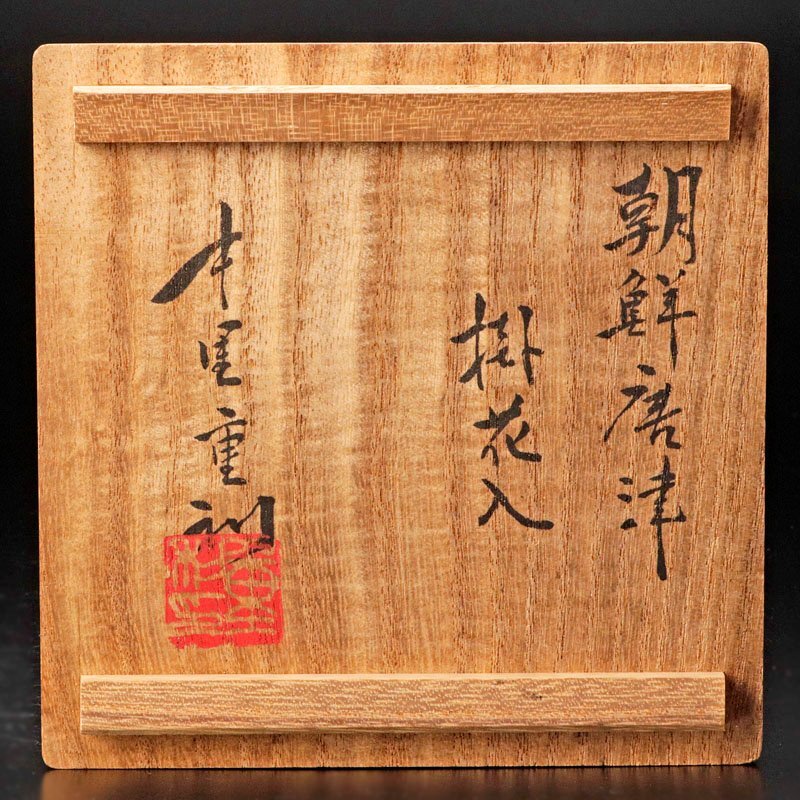 朝鮮唐津
掛花入
中里重利